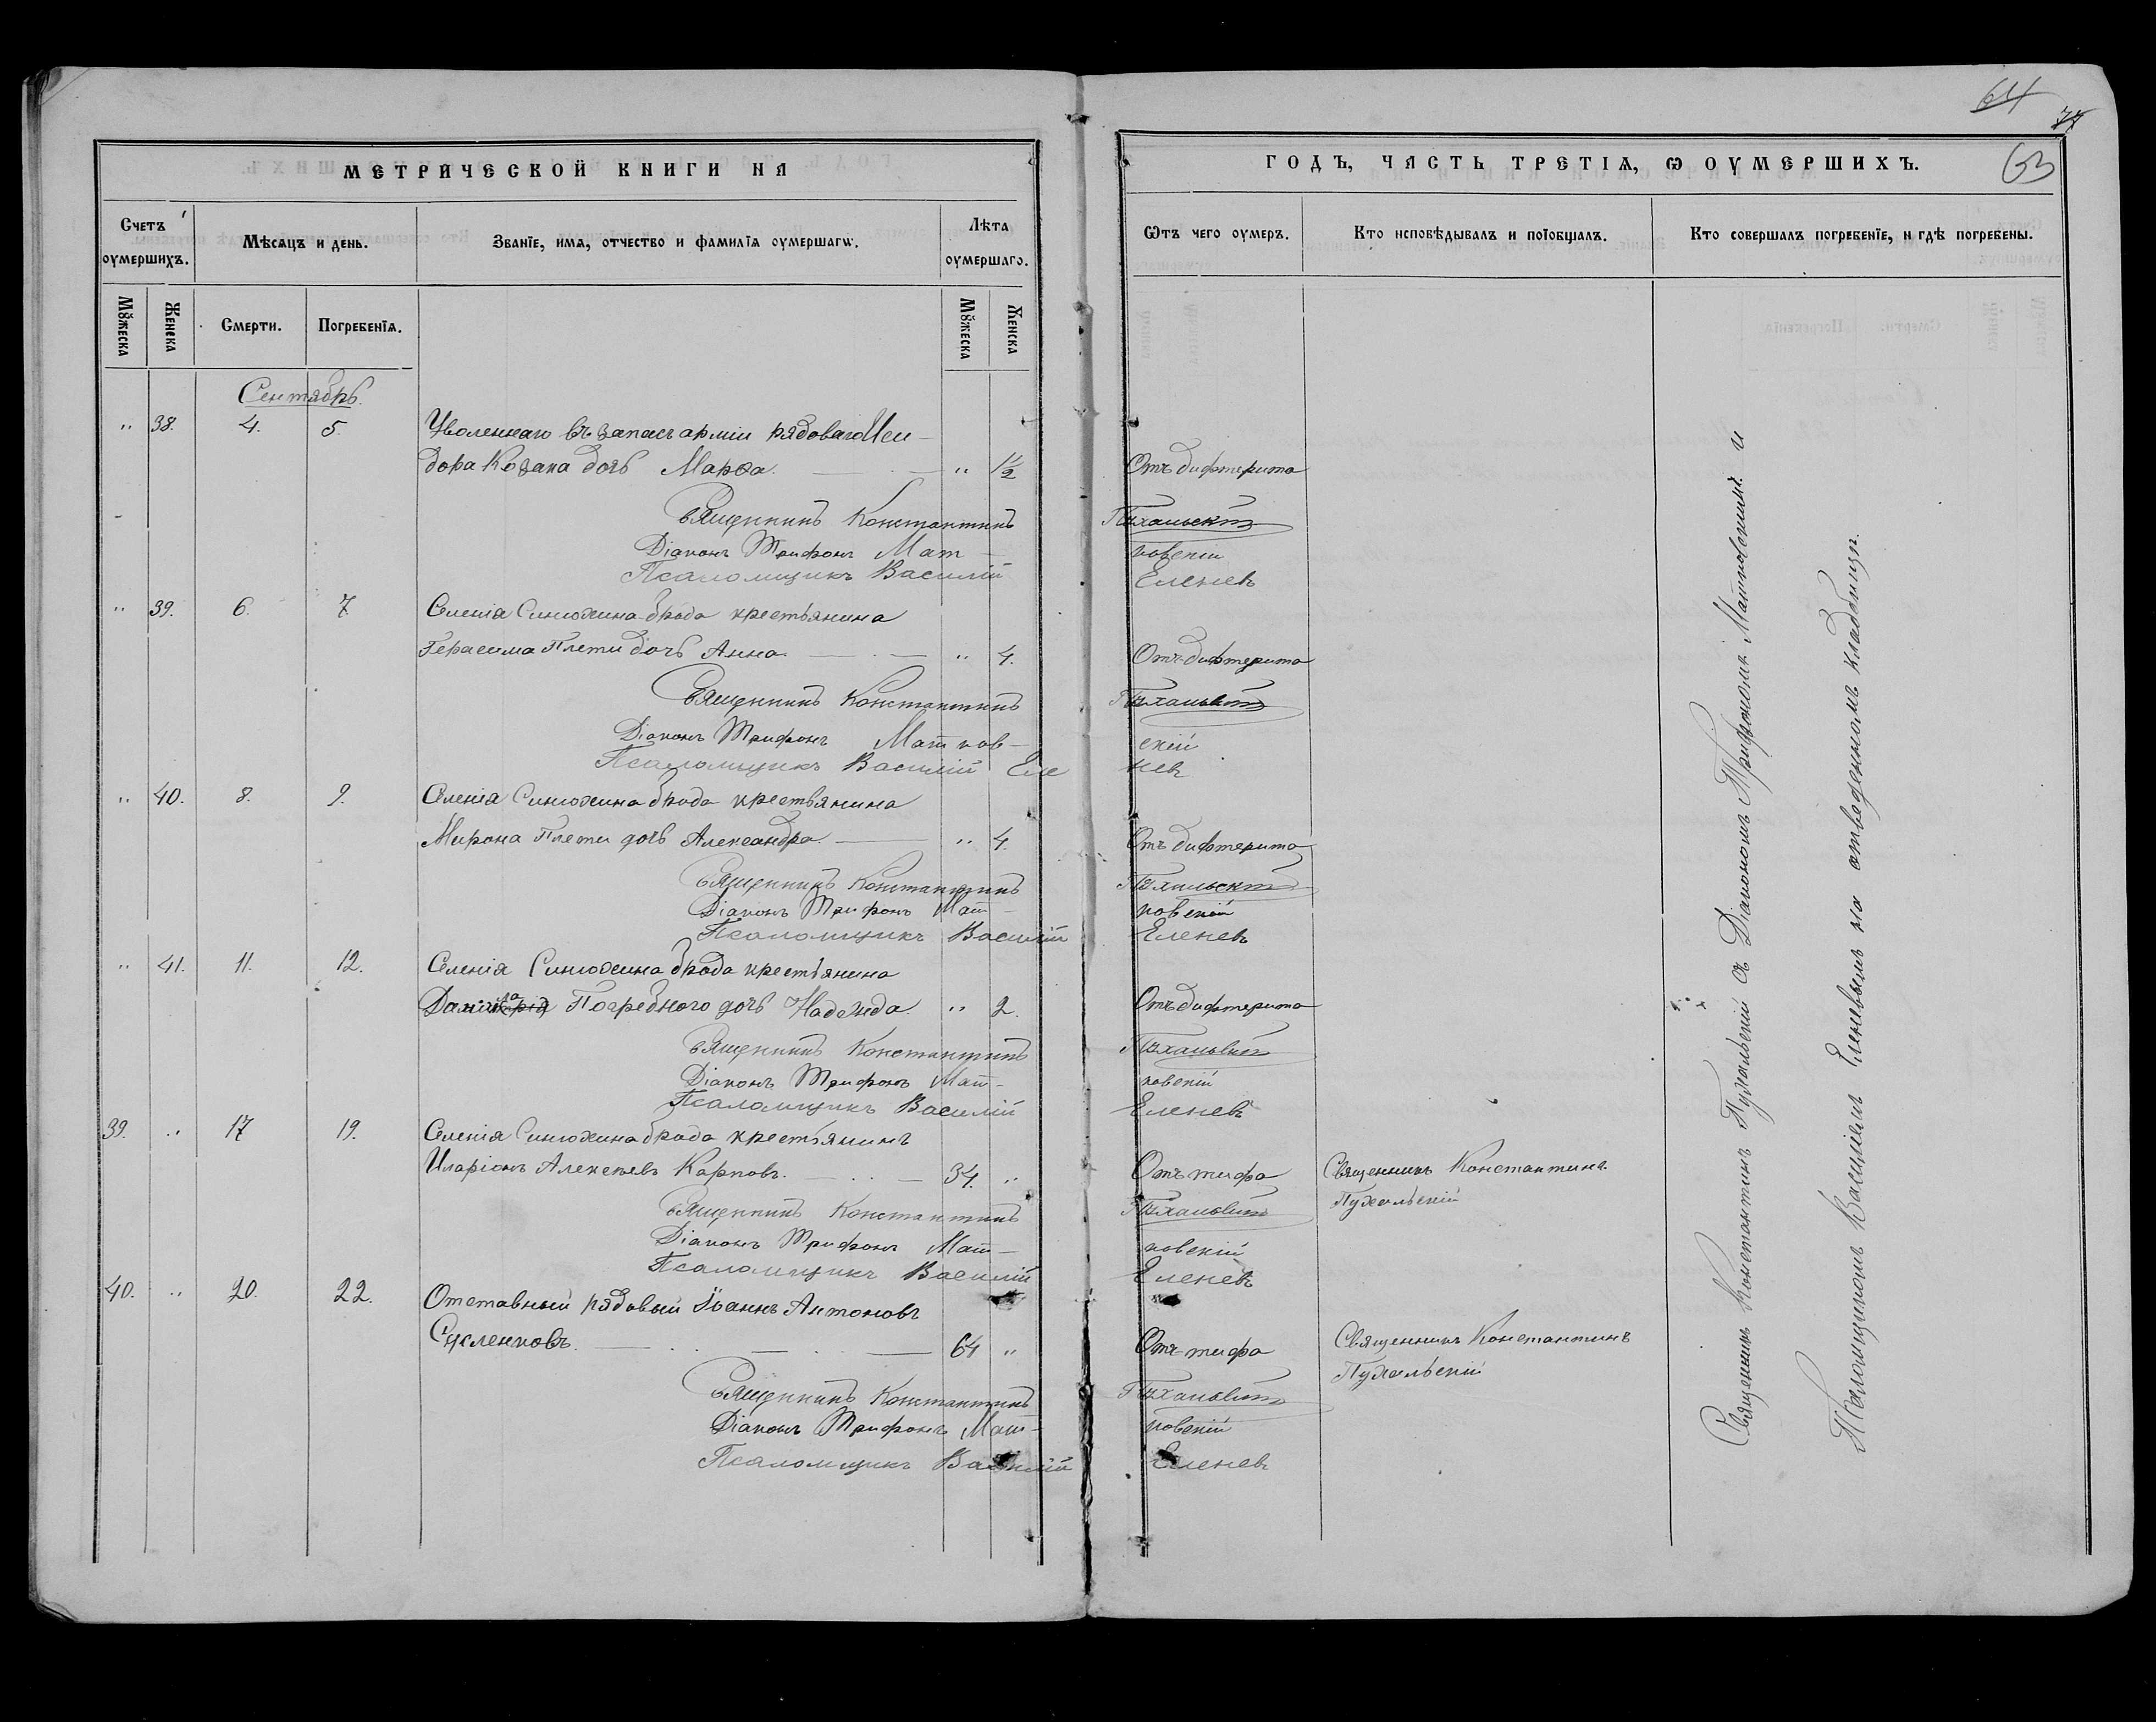 64
77
63
МЕТРИЧЕСКОЙ КНИГИ НА
ГОДЪ, ЧАСТЬ ТРЕТІЯ, Ѡ ОУМЕРШИХЪ.
Счетъ оумершихъ.
Мѣсяцъ и день.
Званіе, имя, отчество и фамилія оумершагѡ.
Лѣта оумершаго.
Ѿтъ чего оумеръ.
Кто исповѣдывалъ и пріобщалъ.
Кто совершалъ погребеніе, и гдѣ погребены.
Мѹжеска
Женска
Смерти.
Погребенія.
Мѹжеска
Женска
Сентябрь.
" 38. 4. 5. Уволеннаго въ запасъ арміи рядоваго Иси-
дора Козака дочь Марѳа. " 1½ Отъ дифтерита
Священникъ Константинъ Пухальскій
Діаконъ Трифонъ Мат-ковскій
Псаломщикъ Василій Еленевъ
" 39. 6. 7 Селенія Синюхина-брода крестьянина
Герасима Плети дочь Анна. " 4. Отъ дифтерита
Священникъ Константинъ Пухальскій
Діаконъ Трифонъ Матков-скій
Псаломщикъ Василій Еленевъ
" 40. 8. 9. Селенія Синюхина брода крестьянина
Мирона Плети дочь Александра. " 4. Отъ дифтерита
Священникъ Константинъ Пухальскій
Діаконъ Трифонъ Мат-ковскій
Псаломщикъ Василій Еленевъ
" 41. 11. 12. Селенія Синюхина брода крестьянина
Погребного дочь Надежда. " 2. Отъ дифтерита
Священникъ Константинъ Пухальскій
Діаконъ Трифонъ Мат-ковскій
Псаломщикъ Василій Еленевъ
39. " 17 19. Селенія Синюхина брода крестьянинъ
Иларіонъ Алексѣевъ Карповъ. 34. " Отъ тифа Священникъ Константинъ
Пухальскій
Священникъ Константинъ Пухальскій
Діаконъ Трифонъ Мат-ковскій
Псаломщикъ Василій Еленевъ
40. " 20. 22. Отставный рядовый Іоаннъ Антоновъ
Сусленковъ. 64 " Отъ тифа Священникъ Константинъ
Пухальскій
Священникъ Константинъ Пухальскій
Діаконъ Трифонъ Мат-ковскій
Псаломщикъ Василій Еленевъ
Священникъ Константинъ Пухальскій съ Діакономъ Трифономъ Матковскимъ и
Псаломщикомъ Василіемъ Еленевымъ на отведенномъ кладбищѣ.